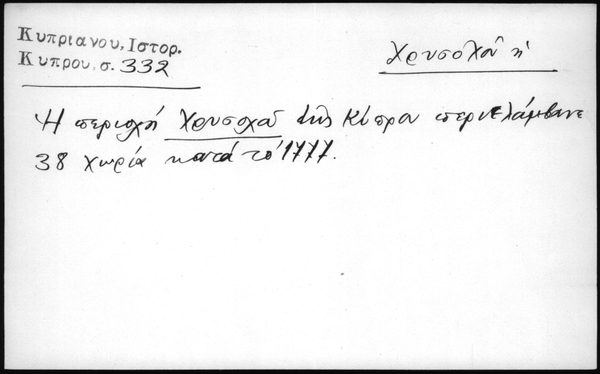 Κυπριανου, Ιστορ.
Κυπρου, σ. 332
Χρυσοχοῦ ἡ
Ἡ περιοχή Χρυσοχοῦ τῆς Κύπρου περιελάμβανε
38 χωρία κατά τό 1777.